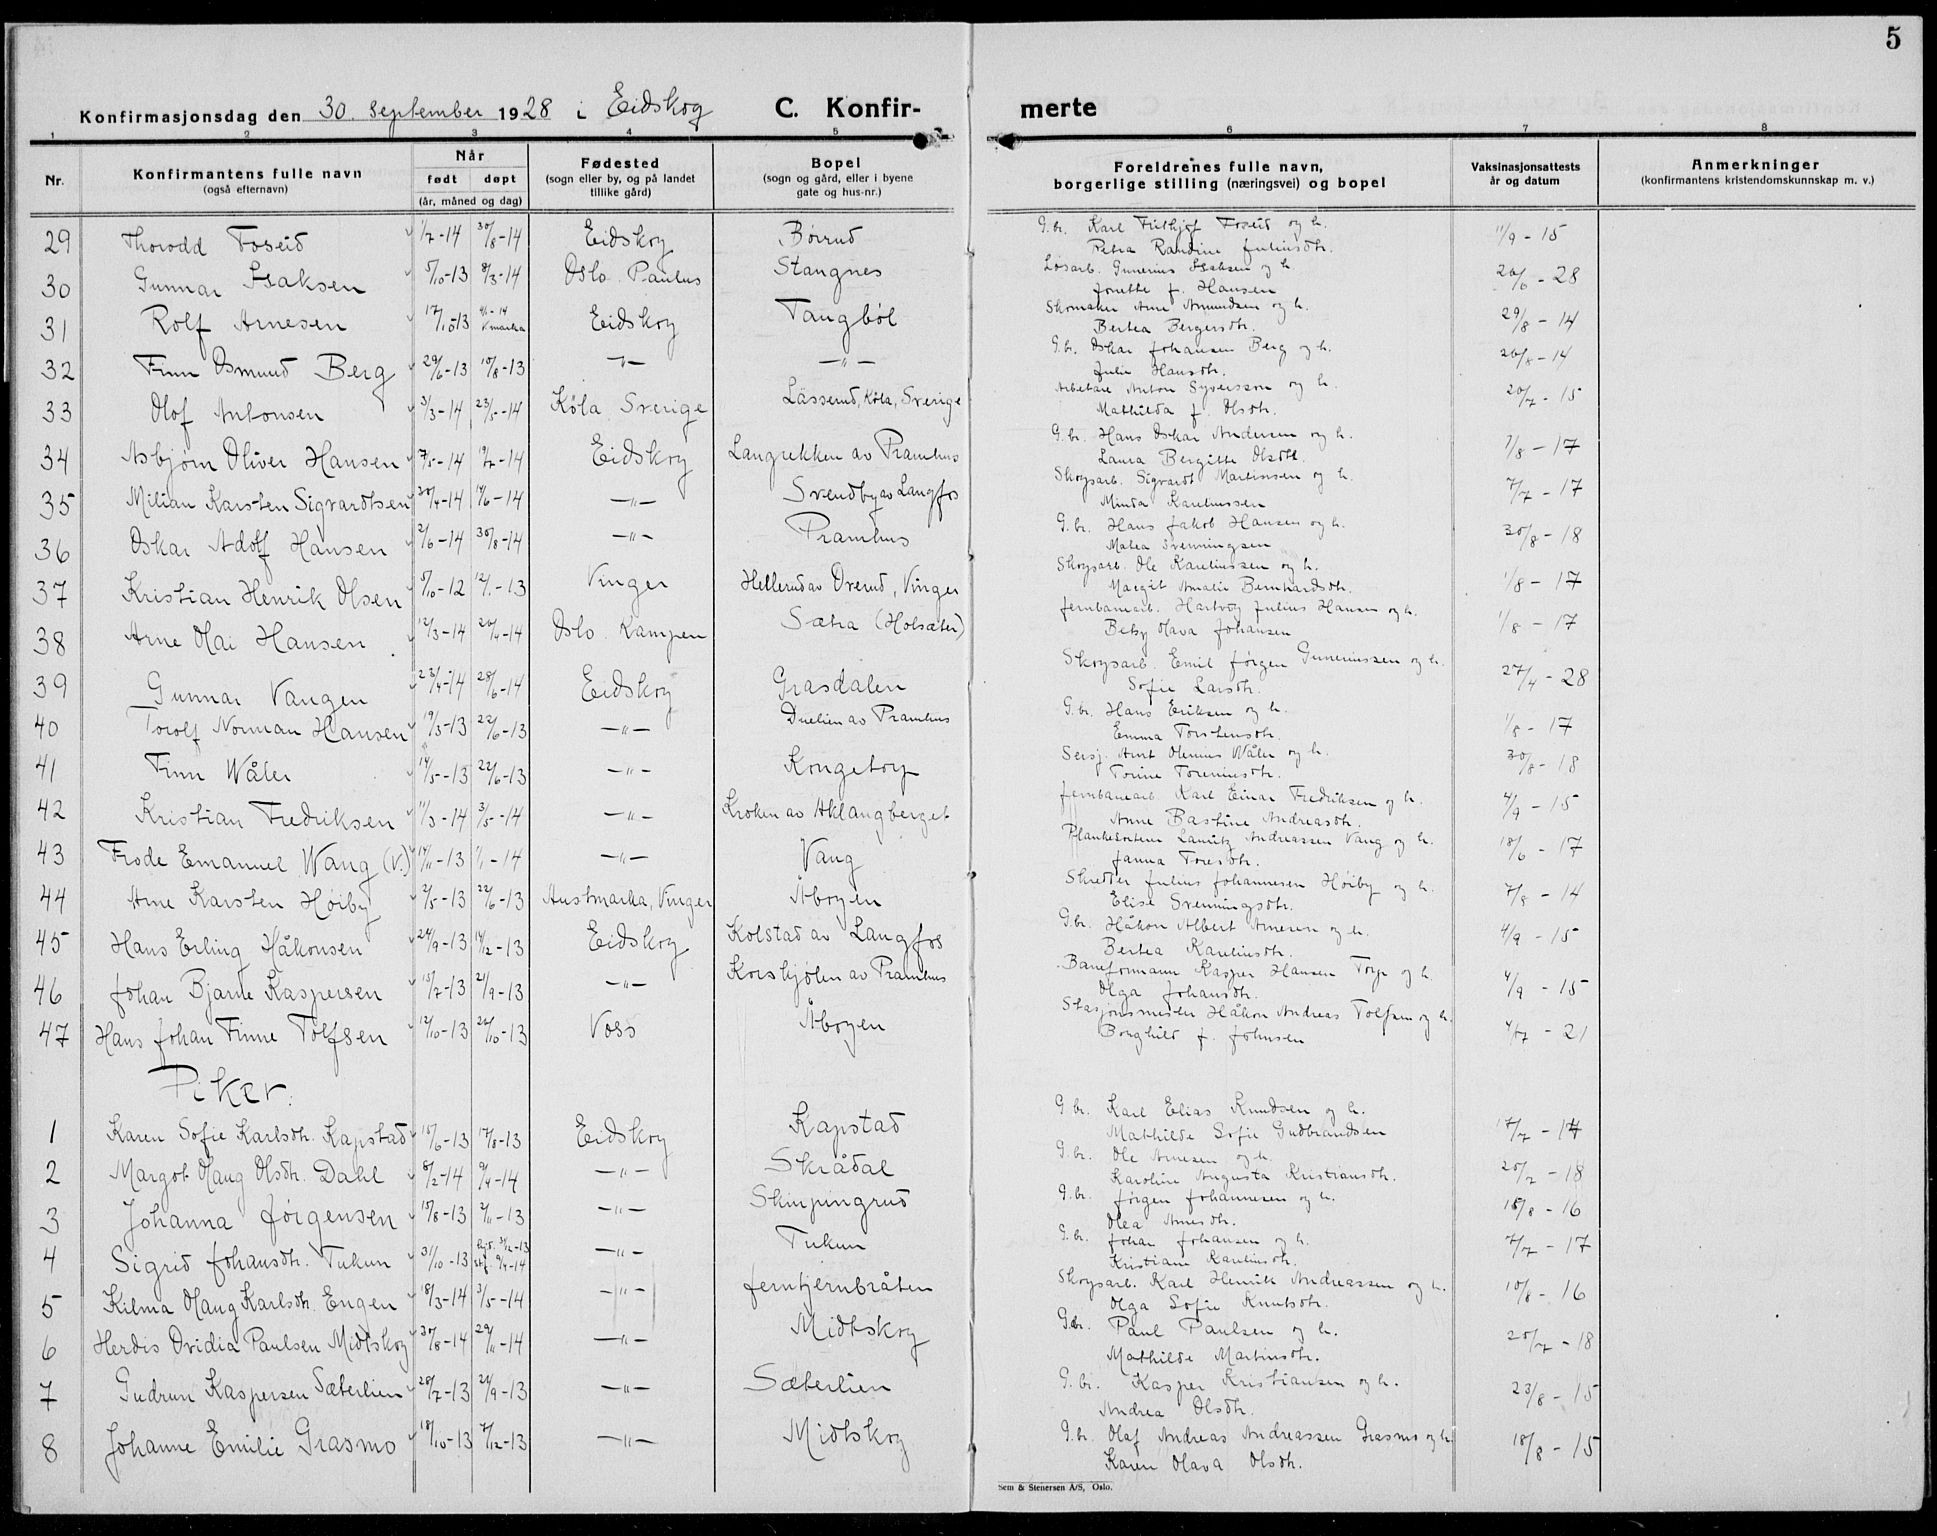 5
Konfirmasjonsdag den 30. september 1928 i Eidskog C. Konfir- merte
1 2 3 4 5 6 7 8
Nr. Konfirmantens fulle navn (også efternavn) Når født døpt (år, måned og dag) Fødested (sogn eller by, og på landet tillike gård) Bopel (sogn og gård, eller i byene gate og hus-nr.) Foreldrenes fulle navn, borgerlige stilling (næringsvei) og bopel Vaksinasjonsattests år og datum Anmerkninger (konfirmantens kristendomskunnskap m. v.)
29 Thorodd Foseid 1/7-14 30/8-14 Eidskog Børrud G.br. Karl Frithjof Foseid og h. 11/9-15
Petra Randine Juliusdtr.
30 Gunnar Isaksen 5/10-13 8/3-14 Oslo. Paulus Stangnes Løsarb. Gunerius Isaksen og h. 26/6-28
Jonette f. Hansen
31 Rolf Arnesen 17/10-13 Eidskog Tangbøl Skomaker Arne Amundsen og h. 29/8-14
Bertea Bergersdtr.
32 Finn Osmund Berg 29/6-13 10/8-13 —"— —"— G.br. Oskar Johansen Berg og h. 26/8-14
Julie Hansdtr.
33 Olof Antonsen 3/3-14 23/5-14 Køla Sverige Lässerud, Køla, Sverige Arbetare Anton Syversson og h. 20/7-15
Mathilda f. Olsdtr.
34 Asbjørn Oliver Hansen 7/5-14 19/7-14 Eidskog Langrekken av Pramhus G.br. Hans Oskar Andersen og h. 1/8-17
Laura Bergitte Olsdtr.
35 Milian Karsten Sigvardtsen 30/4-14 14/6-14 —"— Svendby av Langfos Skogsarb. Sigvardt Martinsen og h. 7/7-17
Minda Kareliussen
36 Oskar Adolf Hansen 2/6-14 30/8-14 —"— Pramhus G.br. Hans Jakob Hansen og h. 30/8-18
Matea Svenningsen
37 Kristian Henrik Olsen 5/10-12 12/1-13 Vinger Hellerud av Overud, Vinger Skogsarb. Ole Kareliussen og h. 1/8-17
Margit Amalie Bernhardsdtr.
38 Arne Olai Hansen 12/3-14 26/4-14 Oslo. Kampen Sætra (Holsæter) Jernbanearb. Hartvig Julius Hansen og h. 1/8-17
Betsy Olava Johansen
39 Gunnar Vangen 23/4-14 28/6-14 Eidskog Grasdalen Skogsarb. Emil Jørgen Guneriussen og h. 27/4-28
Sofie Larsdtr.
40 Torolf Norman Hansen 19/3-13 22/6-13 —"— Duelien av Pramhus G.br. Hans Eriksen og h. 1/8-17
Emma Torstensdtr.
41 Finn Wåler 14/5-13 22/6-13 —"— Kongetorp Sersj. Arnt Olenius Wåler og h. 30/8-18
Torine Toreniusdtr.
42 Kristian Fredriksen 11/3-14 3/5-14 —"— Kroken av Aklangberget Jernbanearb. Karl Einar Fredriksen og h. 4/9-15
Anne Bastine Andreasdtr.
43 Frode Emanuel Wang (V.) 14/11-13 1/1-14 —"— Vang Plankesorterer Lauritz Andreassen Vang og h. 18/6-17
Janna Toresdtr.
44 Arne Karsten Høiby 2/5-13 22/6-13 Austmarka, Vinger Åbogen Skredder Julius Johannesen Høiby og h. 7/8-14
Elise Svenningsdtr.
45 Hans Erling Håkonsen 24/9-13 14/12-13 Eidskog Kolstad av Langfos G.br. Håkon Albert Arnesen og h. 4/9-15
Bertea Kareliusdtr.
46 Johan Bjarne Kaspersen 15/7-13 21/9-13 —"— Korshjølen av Pramhus Baneformann Kasper Hansen Torp og h. 4/9-15
Olga Johansdtr.
47 Hans Johan Finne Tolfsen 12/10-13 26/10-13 Voss Åbogen Stasjonsmester Håkon Andreas Tolfsen og h. 4/7-21
Borghild f. Johnsen
Piker.
1 Karen Sofie Karlsdtr. Kapstad 15/6-13 17/8-13 Eidskog Kapstad G.br. Karl Elias Knudsen og h. 17/7-14
Mathilde Sofie Gudbrandsen
2 Margot Haug Olsdtr. Dahl 8/2-14 9/4-14 —"— Skrådal G.br. Ole Arnesen og h. 20/7-18
Karoline Augusta Kristiansdtr.
3 Johanna Jørgensen 15/8-13 2/11-13 —"— Skinpungrud G.br. Jørgen Johannesen og h. 18/8-16
Olea Arnesdtr.
4 Sigrid Johansdtr. Tukun 31/10-13 hjd. 31/12-13 stf. 9/4-14 —"— Tukun G.br. Johan Johansen og h. 7/7-17
Kristiane Kareliusdtr.
5 Kilma Haug Karlsdtr. Engen 18/3-14 3/5-14 —"— Jerntjernbråten Skogsarb. Karl Henrik Andreassen og h. 10/8-16
Olga Sofie Knutsdtr.
6 Herdis Ovidia Paulsen Midtskog 30/8-14 29/11-14 —"— Midtskog G.br. Paul Paulsen og h. 20/7-18
Mathilde Martinsdtr.
7 Gudrun Kaspersen Sæterlien 20/7-13 21/9-13 —"— Sæterlien G.br. Kasper Kristiansen og h. 23/8-15
Andrea Olsdtr.
8 Johanne Emilie Grasmo 18/10-13 7/12-13 —"— Midtskog G.br. Olaf Andreas Andreassen Grasmo og h. 18/8-15
Karen Olava Olsdtr.
Sem & Stenersen A/S, Oslo.